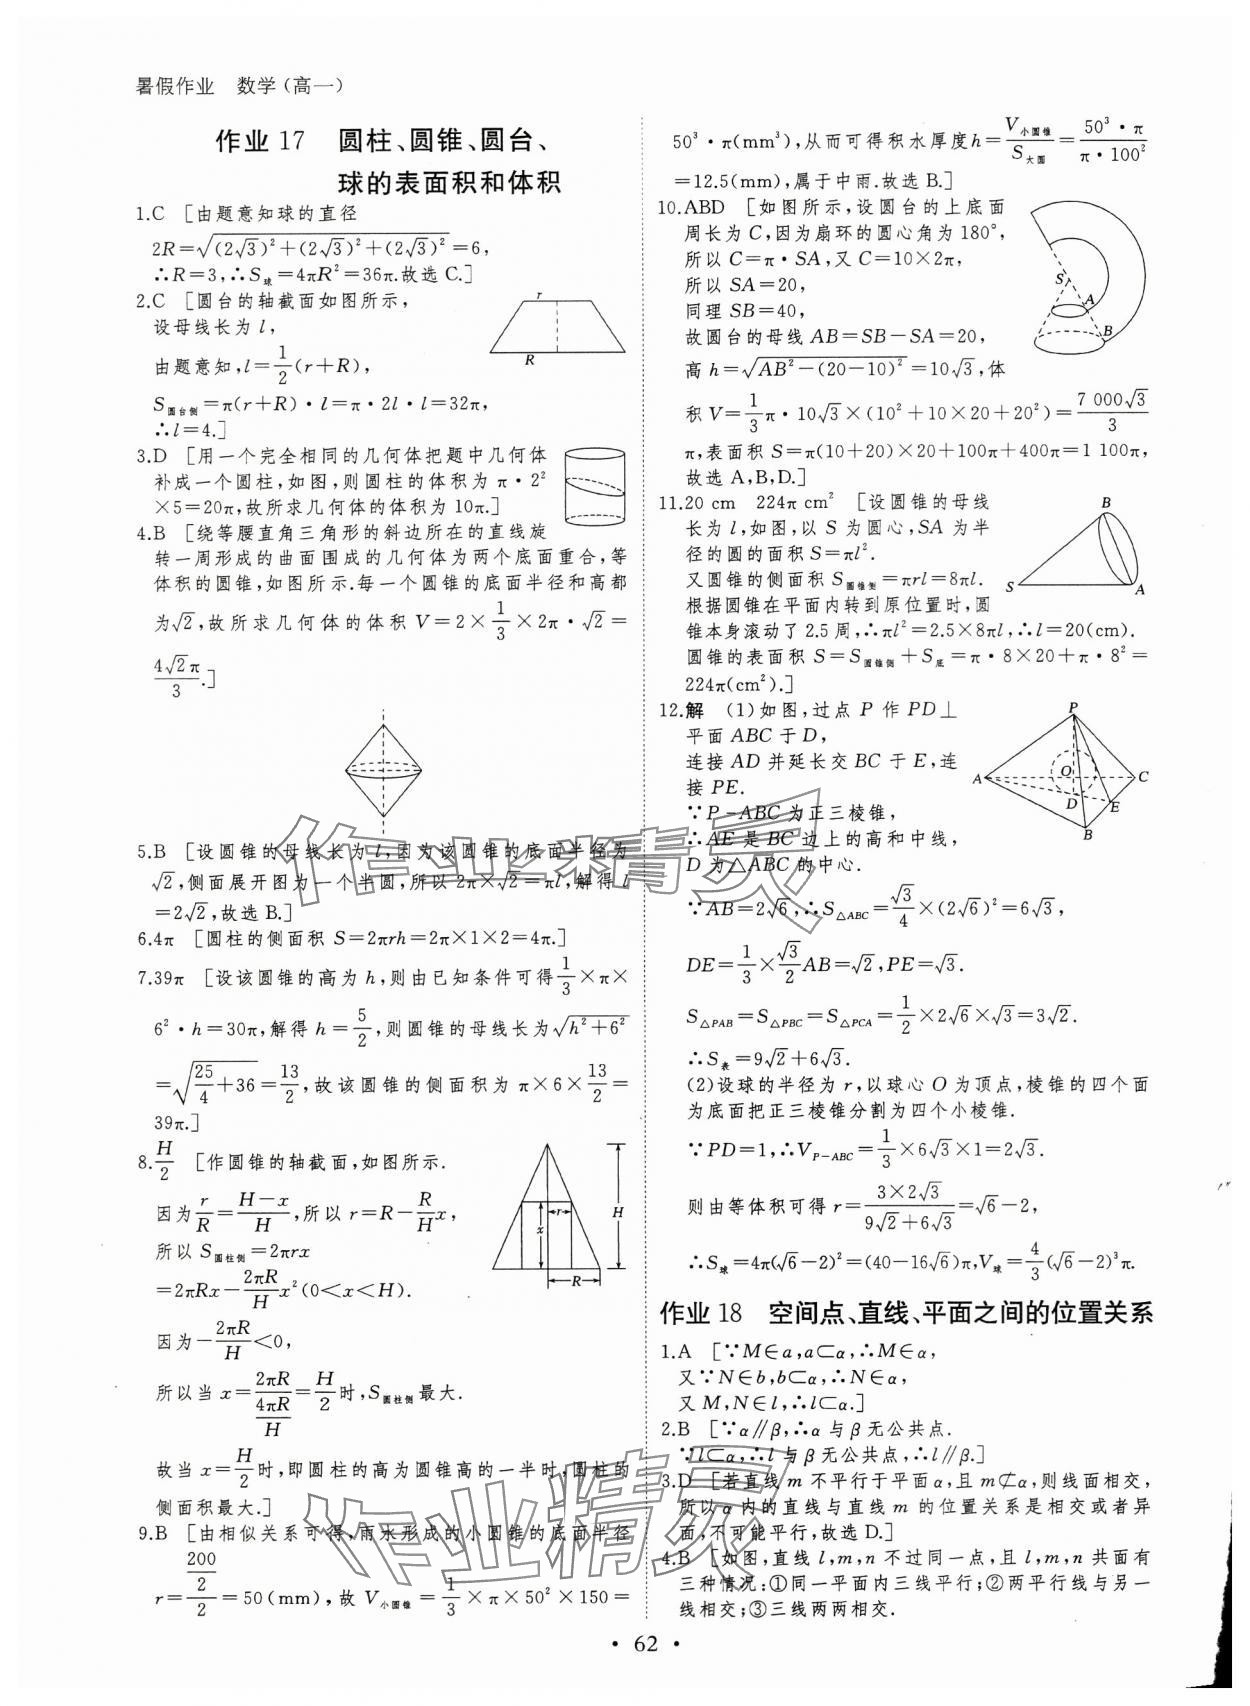 暑假作业　数学(高一)
作业 17　圆柱、圆锥、圆台、
球的表面积和体积
1.C　[由题意知球的直径
2R=√((2√3)²+(2√3)²+(2√3)²)=6,
∴R=3,∴S球=4πR²=36π.故选 C.]
2.C　[圆台的轴截面如图所示,
设母线长为 l,
由题意知,l=1/2(r+R),
S圆台侧=π(r+R)·l=π·2l·l=32π,
∴l=4.]
r
R
3.D　[用一个完全相同的几何体把题中几何体
补成一个圆柱,如图,则圆柱的体积为 π·2²
×5=20π,故所求几何体的体积为 10π.]
4.B　[绕等腰直角三角形的斜边所在的直线旋
转一周形成的曲面围成的几何体为两个底面重合,等
体积的圆锥,如图所示.每一个圆锥的底面半径和高都
为√2,故所求几何体的体积 V=2×1/3×2π·√2=
4√2π/3.]
5.B　[设圆锥的母线长为 l,因为该圆锥的底面半径为
√2,侧面展开图为一个半圆,所以 2π×√2=πl,解得 l
=2√2,故选 B.]
6.4π　[圆柱的侧面积 S=2πrh=2π×1×2=4π.]
7.39π　[设该圆锥的高为 h,则由已知条件可得1/3×π×
6²·h=30π,解得 h=5/2,则圆锥的母线长为√(h²+6²)
=√(25/4+36)=13/2,故该圆锥的侧面积为 π×6×13/2=
39π.]
8.H/2　[作圆锥的轴截面,如图所示.
因为r/R=(H-x)/H,所以 r=R-R/H x,
所以 S圆柱侧=2πrx
=2πRx-2πR/H x²(0<x<H).
因为-2πR/H<0,
所以当 x=2πR/(4πR/H)=H/2时,S圆柱侧最大.
r
x
H
R
故当 x=H/2时,即圆柱的高为圆锥高的一半时,圆柱的
侧面积最大.]
9.B　[由相似关系可得,雨水形成的小圆锥的底面半径
r=(200/2)/2=50(mm),故 V小圆锥=1/3×π×50²×150=
50³·π(mm³),从而可得积水厚度h=V小圆锥/S大圆=50³·π/π·100²
=12.5(mm),属于中雨.故选 B.]
10.ABD　[如图所示,设圆台的上底面
周长为 C,因为扇环的圆心角为 180°,
所以 C=π·SA,又 C=10×2π,
所以 SA=20,
同理 SB=40,
故圆台的母线 AB=SB-SA=20,
高 h=√(AB²-(20-10)²)=10√3,体
积 V=1/3π·10√3×(10²+10×20+20²)=7 000√3/3
π,表面积 S=π(10+20)×20+100π+400π=1 100π,
故选 A,B,D.]
S
A
B
11.20 cm　224π cm²　[设圆锥的母线
长为 l,如图,以 S 为圆心,SA 为半
径的圆的面积 S=πl².
又圆锥的侧面积 S圆锥侧=πrl=8πl.
根据圆锥在平面内转到原位置时,圆
锥本身滚动了 2.5 周,∴πl²=2.5×8πl,∴l=20(cm).
圆锥的表面积 S=S圆锥侧+S底=π·8×20+π·8²=
224π(cm²).]
B
S
A
12.解　(1)如图,过点 P 作 PD⊥
平面 ABC 于 D,
连接 AD 并延长交 BC 于 E,连
接 PE.
∵P-ABC 为正三棱锥,
∴AE 是 BC 边上的高和中线,
D 为△ABC 的中心.
P
A
O
C
D
E
B
∵AB=2√6,∴S△ABC=√3/4×(2√6)²=6√3,
DE=1/3×√3/2AB=√2,PE=√3.
S△PAB=S△PBC=S△PCA=1/2×2√6×√3=3√2.
∴S表=9√2+6√3.
(2)设球的半径为 r,以球心 O 为顶点,棱锥的四个面
为底面把正三棱锥分割为四个小棱锥.
∵PD=1,∴V P-ABC=1/3×6√3×1=2√3.
则由等体积可得 r=3×2√3/(9√2+6√3)=√6-2,
∴S球=4π(√6-2)²=(40-16√6)π,V球=4/3(√6-2)³π.
作业 18　空间点、直线、平面之间的位置关系
1.A　[∵M∈a,a⊂α,∴M∈α,
又∵N∈b,b⊂α,∴N∈α,
又 M,N∈l,∴l⊂α.]
2.B　[∵α∥β,∴α 与 β 无公共点.
∵l⊂α,∴l 与 β 无公共点,∴l∥β.]
3.D　[若直线 m 不平行于平面 α,且 m⊄α,则线面相交,
所以 α 内的直线与直线 m 的位置关系是相交或者异
面,不可能平行,故选 D.]
4.B　[如图,直线 l,m,n 不过同一点,且 l,m,n 共面有
三种情况:①同一平面内三线平行;②两平行线与另一
线相交;③三线两两相交.
作业精灵
作业精灵
·62·